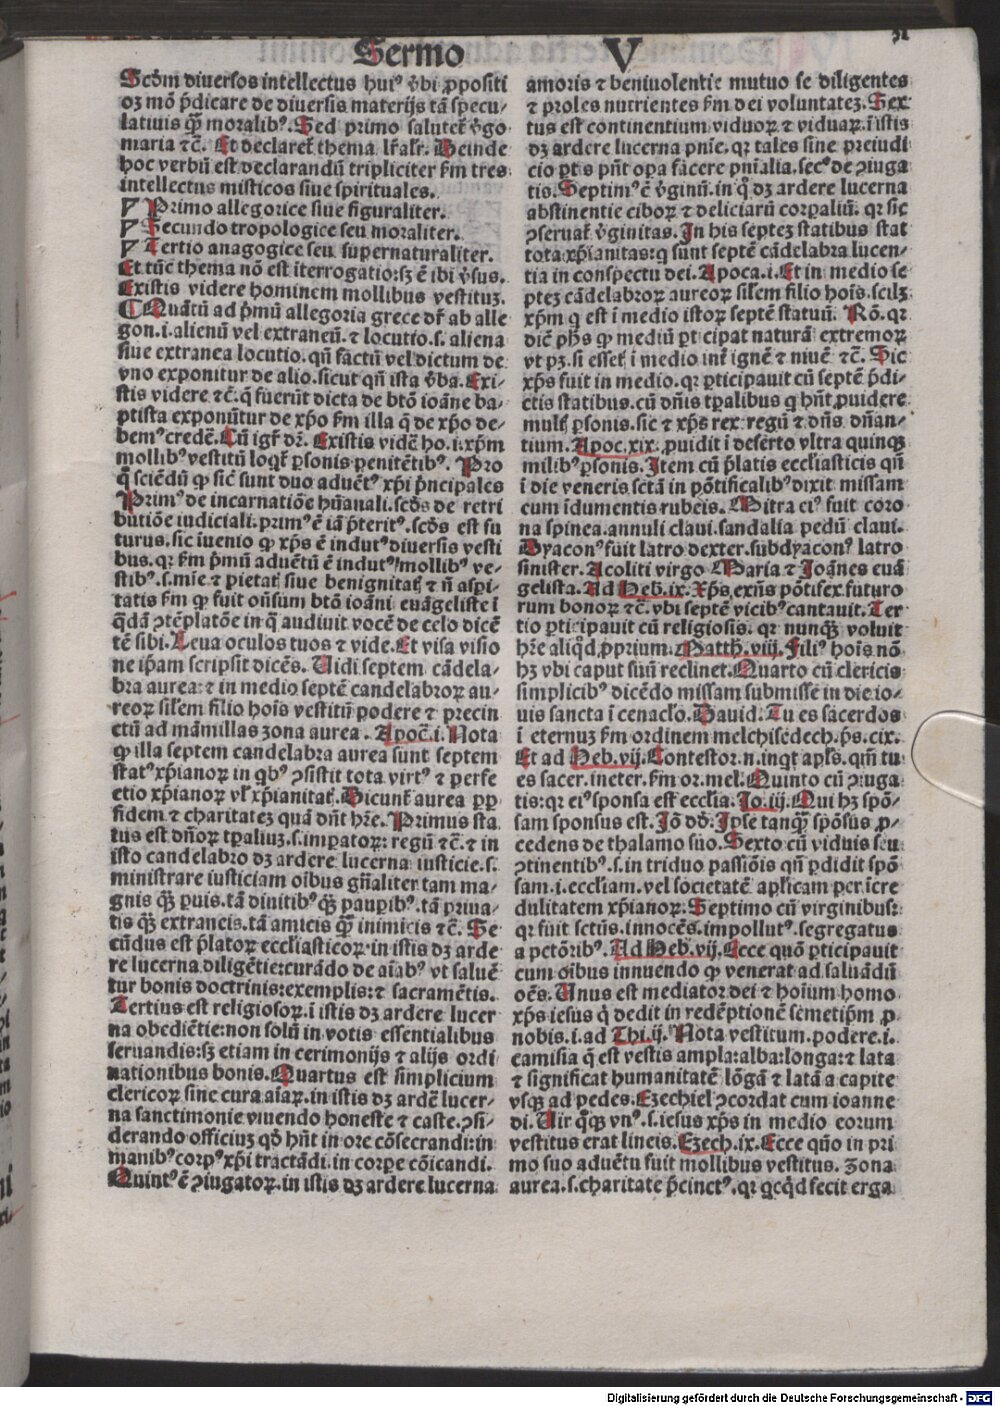 Sermo V
31
Scd'm diuersos intellectus hui⁹ v̄bi ꝓpositi
oꝫ mō p̄dicare de diuersis materijs tā specu/
latiuis q̄ꝫ moralib⁹. Sed primo salutet̄ v̄go
maria ⁊c̄. Et declaret̄ thema lr̄alr̄. Deinde
hoc verbū est declarandū tripliciter ſm tres
intellectus misticos siue spirituales.
Primo allegorice siue figuraliter.
Secundo tropologice seu moraliter.
Tertio anagogice seu supernaturaliter.
Et tūc thema nō est īterrogatio: sꝫ ē ibi v̄sus.
Existis videre hominem mollibus vestituꝫ.
Quātū ad p̄mū allegoria grece dr̄ ab alle
gon .i. alienū vel extraneū. ⁊ locutio .s. aliena
siue extranea locutio. qn̄ factū vel dictum de
vno exponitur de alio. sicut qn̄ ista v̄ba. Exi/
stis videre ⁊c̄. q̄ fuerūt dicta de btō ioāne ba/
ptista exponūtur de xp̄o ſm illa q̄ de xp̄o de/
bem⁹ credē. Cū igr̄ dr̄. Existis vidē ho. i. xp̄m
mollib⁹ vestitū loqr̄ ꝑsonis penitētib⁹. Pro
q̄ sciēdū ꝙ sic̄ sunt duo aduēt⁹ xp̄i p̄ncipales
Prim⁹ de incarnatiōe hūanali. scd̄s de retri
butiōe iudiciali. prim⁹ ē iā p̄terit⁹. scd̄s est fu
turus. sic iuenio ꝙ xp̄s ē indut⁹ diuersis vesti
bus. qr̄ ſm p̄mū aduētū ē indut⁹ mollib⁹ ve/
stib⁹ .s. mīe ⁊ pietat̄ siue benignitat̄ ⁊ n̄ aspi/
tatis ſm ꝙ fuit on̄sum btō ioāni euāgeliste ī
q̄dā ꝯtēplatōe in q̄ audiuit vocē de celo dicē
tē sibi. Leua oculos tuos ⁊ vide. Et visa visio
ne ip̄am scripsit dicēs. Uidi septem cādela/
bra aurea: ⁊ in medio septē candelabroꝝ au/
reoꝝ sil̄em filio hoīs vestitū podere ⁊ precin
ctū ad māmillas zona aurea. Apoc̄.i. Nota
ꝙ illa septem candelabra aurea sunt septem
stat⁹ xp̄ianoꝝ in qb⁹ ꝯsistit tota virt⁹ ⁊ perfe
ctio xp̄ianoꝝ vl̄ xp̄ianitat̄. Dicunt̄ aurea ꝓp̄
fidem ⁊ charitateꝫ quā dn̄t hr̄e. Primus sta
tus est dn̄oꝝ tꝑaliuꝫ .s. imꝑatoꝝ: regū ⁊c̄. ⁊ in
isto candelabro dꝫ ardere lucerna iusticie .s.
ministrare iusticiam oībus gn̄aliter tam ma/
gnis q̄ꝫ puis. tā diuitib⁹ q̄ꝫ pauꝑib⁹. tā priua/
tis q̄ꝫ extraneis. tā amicis q̄ꝫ inimicis ⁊c̄. Se
cūdus est p̄latoꝝ eccl̄iasticoꝝ. in istis dꝫ arde/
re lucerna diligētie: curādo de aīab⁹ vt saluē
tur bonis doctrinis: exemplis: ⁊ sacramētis.
Tertius est religiosoꝝ. ī istis dꝫ ardere lucer
na obediētie: non solū in votis essentialibus
seruandis: sꝫ etiam in cerimonijs ⁊ alijs ordi
nationibus bonis. Quartus est simplicium
clericoꝝ sine cura aīaꝝ. in istis dꝫ ardē lucer/
na sanctimonie viuendo honeste ⁊ caste. ꝯsi/
derando officiuꝫ qd̄ hn̄t in ore cōsecrandi: in
manib⁹ corp⁹ xp̄i tractādi. in corꝑe cōicandi.
Quint⁹ ē ꝯiugatoꝝ. in istis dꝫ ardere lucerna
amoris ⁊ beniuolentie mutuo se diligentes
⁊ proles nutrientes ſm dei voluntateꝫ. Sex
tus est continentium viduoꝝ ⁊ viduaꝝ. ī istis
dꝫ ardere lucerna pn̄ie. qr̄ tales sine preiudi
cio pt̄s pn̄t oꝑa facere pn̄ialia. sec⁹ de ꝯiuga
tis. Septim⁹ ē v̄ginū. in q̄ dꝫ ardere lucerna
abstinentie ciboꝝ ⁊ deliciarū corꝑaliū. qr̄ sic
ꝯseruat̄ v̄ginitas. In his septeꝫ statibus stat
tota xp̄ianitas: q̄ sunt septē cādelabra lucen/
tia in conspectu dei. Apoca.i. Et in medio se
pteꝫ cādelabroꝝ aureoꝝ sil̄em filio hoīs. scilꝫ
xp̄m q̄ est ī medio istoꝝ septē statuū. Rō. qr̄
dic̄ ph̄s ꝙ mediū ꝑticipat naturā extremoꝝ
vt pꝫ. si esset ī medio int̄ ignē ⁊ niuē ⁊c̄. Sic
xp̄s fuit in medio. qr̄ ꝑticipauit cū septē p̄di/
ctis statibus. cū dn̄is tꝑalibus q̄ hn̄t ꝓuidere
mult̄ ꝑsonis. sic ⁊ xp̄s rex regū ⁊ dn̄s dn̄an/
tium. Apoc.xix. ꝓuidit ī deserto vltra quinqꝫ
milib⁹ ꝑsonis. Item cū p̄latis eccl̄iasticis qn̄
ī die veneris sctā in pōtificalib⁹ dixit missam
cum īdumentis rubeis. Mitra ei⁹ fuit coro
na spinea. annuli claui. sandalia pedū claui.
Dyacon⁹ fuit latro dexter. subdyacon⁹ latro
sinister. Acoliti virgo Maria ⁊ Joānes euā
gelista. Ad Heb.ix. Xp̄s exn̄s pōtifex futuro
rum bonoꝝ ⁊c̄. vbi septē vicib⁹ cantauit. Ter
tio ꝑticipauit cū religiosis. qr̄ nunqꝫ voluit
hr̄e aliqd̄ ꝓprium. Matth.viij. Fili⁹ hoīs nō
hꝫ vbi caput suū reclinet. Quarto cū clericis
simplicib⁹ dicēdo missam submisse in die io/
uis sancta ī cenaclo. Dauid. Tu es sacerdos
ī eternuꝫ ſm ordinem melchisedech. ps̄. cix.
Et ad Heb.vij. Contestor .n. inqt apl̄s. qm̄ tu
es sacer. ineter. ſm or. mel. Quinto cū ꝯiuga
tis: qr̄ ei⁹ sponsa est eccl̄ia. Jo.iij. Qui hꝫ spō/
sam sponsus est. Jō dd̄. Ip̄se tanq̄ꝫ spōsus ꝓ/
cedens de thalamo suo. Sexto cū viduis seu
ꝯtinentib⁹ .s. in triduo passiōis qn̄ ꝑdidit spō
sam .i. eccl̄iam. vel societatē apl̄icam per īcre
dulitatem xp̄ianoꝝ. Septimo cū virginibus:
qr̄ fuit sctūs. innocēs. impollut⁹. segregatus
a pctōrib⁹. Ad Heb.vij. Ecce quō ꝑticipauit
cum oībus innuendo ꝙ venerat ad saluādū
oēs. Unus est mediator dei ⁊ hoīum homo
xp̄s iesus q̄ dedit in redēptionē semetip̄m ꝓ
nobis. i. ad Thi.ij. Nota vestitum. podere .i.
camisia q̄ est vestis ampla: alba: longa: ⁊ lata
⁊ significat humanitatē lōgā ⁊ latā a capite
vsqꝫ ad pedes. Ezechiel ꝯcordat cum ioanne
di. Uir q̄qꝫ vn⁹ .s. iesus xp̄s in medio eorum
vestitus erat lineis. Ezech.ix. Ecce qūo in pri
mo suo aduētu fuit mollibus vestitus. Zona
aurea .s. charitate p̄cinct⁹. qr̄ qcqd̄ fecit erga
Digitalisierung gefördert durch die Deutsche Forschungsgemeinschaft - DFG